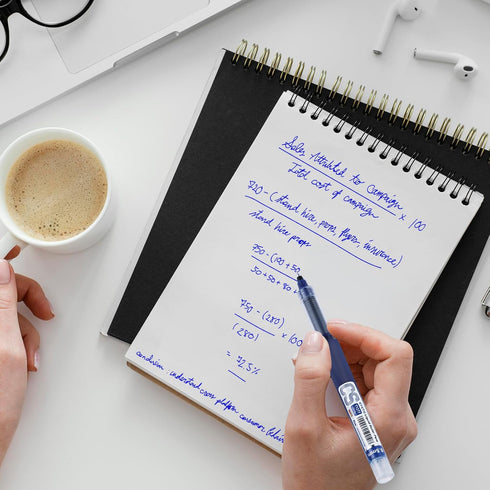 Sales Attributed to Campaign
Total cost of campaign × 100
720 - (stand hire, pens, flyers, insurance)
stand hire props
750 - (100 + 50
50 + 50 + 80 +
750 - (280) × 100
(280)
= 72.5%
conclusion: understand cross platform consumer
CS